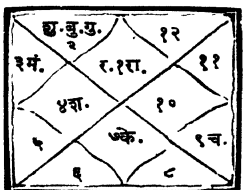 शु. बु. गु.
२
१२
३मं.
र.१रा.
११
४श.
१०
५
७के.
९च.
६
८